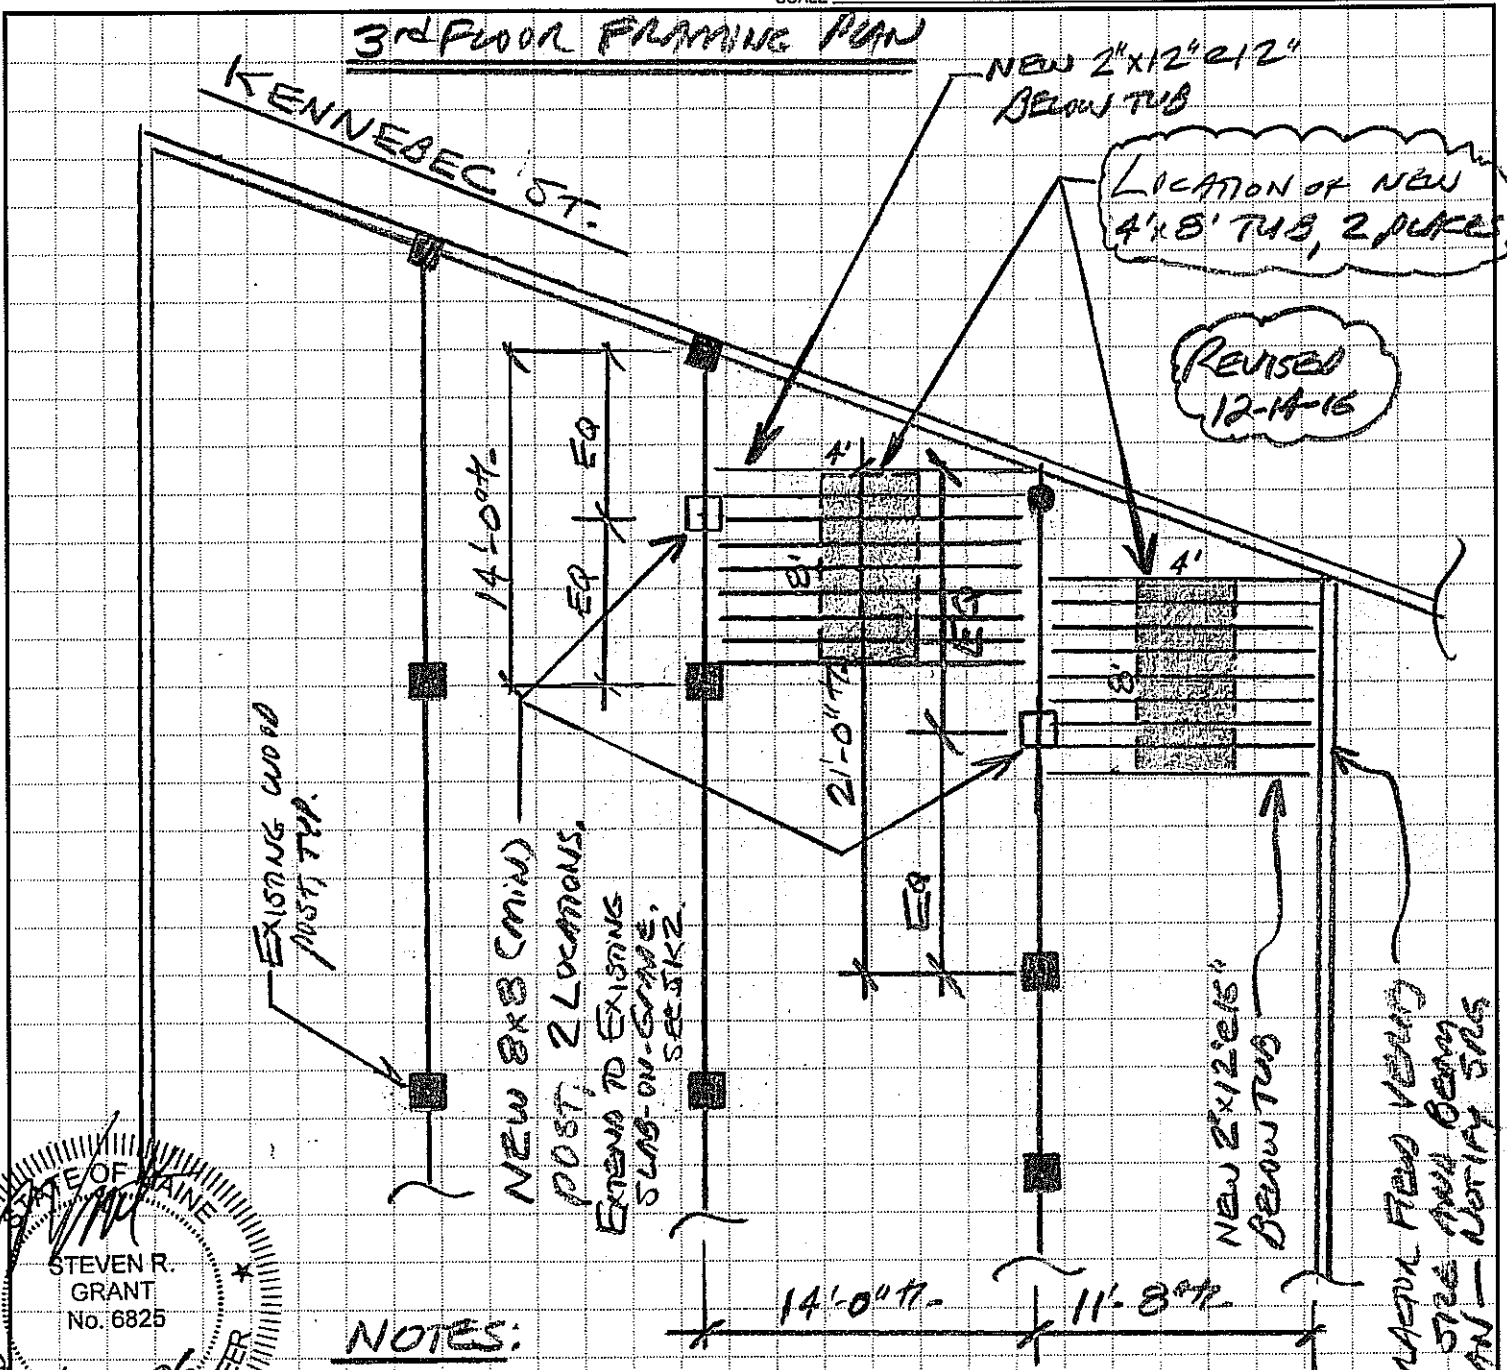 3rd FLOOR FRAMING PLAN
KENNEBEC ST.
NEW 2"x12"@12"
BELOW TUB
LOCATION OF NEW
4'x8' TUB, 2 PLACES
REVISED
12-14-16
14'-0"+/-
EQ
EQ
4'
8'
EQ
21'-0"+/-
EQ
4'
8'
EXISTING WOOD
POST, TYP.
NEW 8x8 (MIN)
POST, 2 LOCATIONS.
EXTEND TO EXISTING
SLAB-ON-GRADE.
SEE SK2.
NEW 2"x12"@16"
BELOW TUB
FIELD VERIFY
SIZE AND BEAM
NOTIFY SRG
14'-0"+/-
11'-8"+/-
STATE OF MAINE
STEVEN R.
GRANT
No. 6825
NOTES: